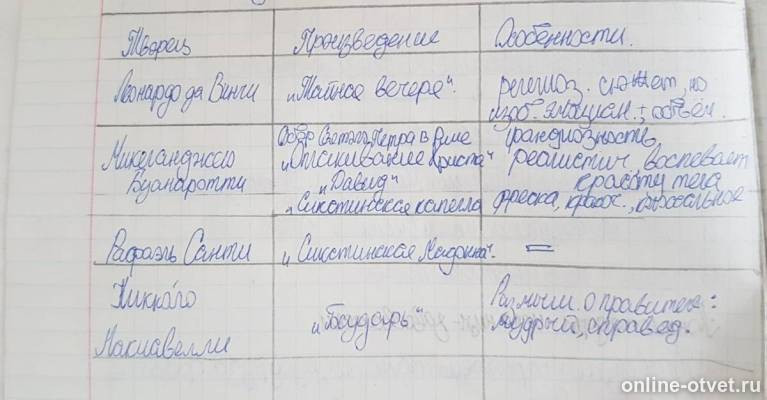 Творец Произведение Особенности.
Леонардо да Винчи „Тайная вечеря“. религиоз. сюжет, но
изоб. эмоцион. + объём.
Микеланджело Буанаротти Собор Святого Петра в Риме грандиозность,
„Оплакивание Христа“ реалистич. воспевает
„Давид“ красоту тела
„Сикстинская капелла фреска, красоч.,
Рафаэль Санти „Сикстинская Мадонна“. =
Никкало Макиавелли „Государь“ Размышл. о правителе:
мудрый, справед.
online-otvet.ru